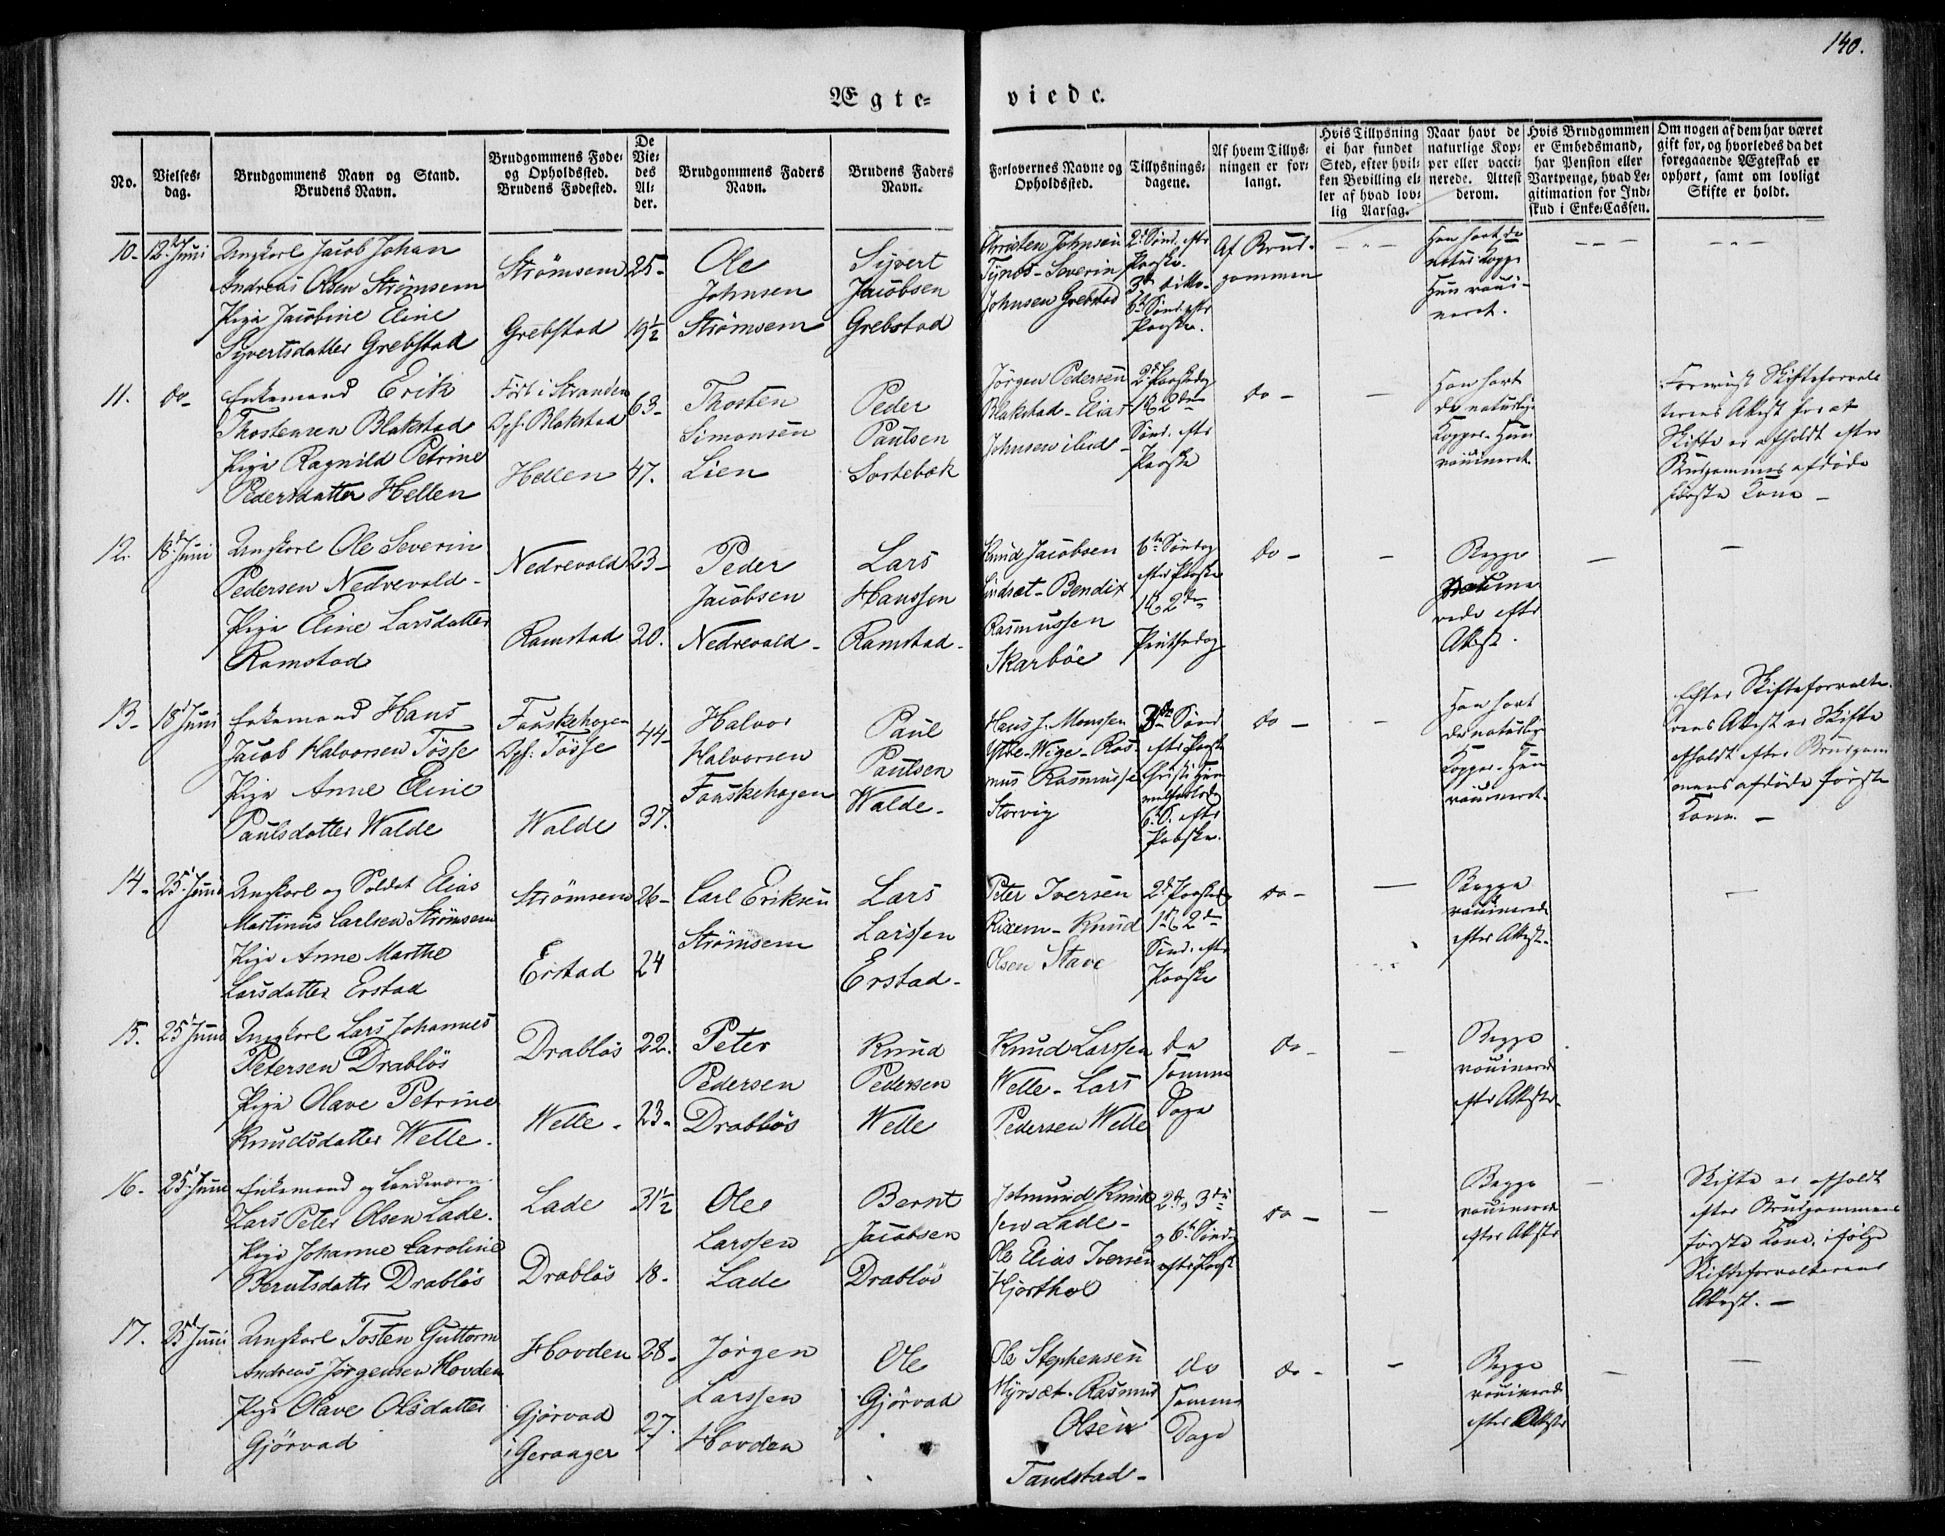 140.
Ægte-
viede.
No.
Vielses-
dag.
Brudgommens Navn og Stand.
Brudens Navn.
Brudgommens Føde-
og Opholdssted.
Brudens Fødested.
De
Vie-
des
Al-
der.
Brudgommens Faders
Navn.
Brudens Faders
Navn.
Forlovernes Navne og
Opholdssted.
Tillysnings-
dagene.
Af hvem Tillys-
ningen er for-
langt.
Hvis Tillysning
ei har fundet
Sted, efter hvil-
ken Bevilling el-
ler af hvad lov-
lig Aarsag.
Naar havt de
naturlige Kop-
per eller vacci-
nerede. Attest
derom.
Hvis Brudgommen
er Embedsmand,
har Pension eller
Vartpenge, hvad Le-
gitimation for Ind-
skud i Enke-Cassen.
Om nogen af dem har været
gift før, og hvorledes da det
foregaaende Ægteskab er
ophørt, samt om lovligt
Skifte er holdt.
10-
12t Juni
Ungkarl Jacob Johan
Andreas Olsen Strømsem
Pige Jacobine Eline
Syvertsdatter Grebstad
Strømsem
Grebstad
25-
19½
Ole
Johnsen
Strømsem
Syvert
Jacobsen
Grebstad
Christen Johnsen
Tynes - Severin
Johnsen Grebstad
2d Sønd. eftr
Paaske.
3die ditto
6te Sønd. eftr
Paaske.
Af Brud-
gommen
Han havt de
natur. Kopper
Hun vacci-
neret.
11.
do-
Enkemand Erik
Thostensen Blakstad
Pige Ragnild Petrine
Pedersdatter Hellen
Født i Stranden
Oph. Blakstad
Hellen
63-
47.
Thosten
Simonsen
Lien
Peder
Paulsen
Sortebæk
Jørgen Pedersen
Blakstad - Elias
Johnsen ibid -
2d Paaskedag
1 & 2den
Sønd. eftr
Paaske
do -
Han havt
de naturlige
Kopper. Hun
vaccineret
Skifteforval-
terens Attest for at
Skifte er afholdt efter
Brudgommens afdøde
første Kone -
12.
18d Juni
Ungkarl Ole Severin
Pedersen Nedrevold -
Pige Eline Larsdatter
Ramstad
Nedrevold
Ramstad
23-
20.
Peder
Jacobsen
Nedrevold -
Lars
Hanssen
Ramstad -
Knud Jacobsen
Lindset - Bendix
Rasmussen
Skarbøe
6te Søndag
efter Paaske
1 & 2den
Pintsedag
do -
Begge
vaccine-
rede eftr
Attest.
13-
18d Juni
Enkemand Hans
Jacob Halvorsen Tøsse
Pige Anne Eline
Paulsdatter Walde
Fauskehagen
Oph. Tøsse
Walde
44-
37.
Halvor
Halvorsen
Fauskehagen
Paul
Paulsen
Walde -
Hans J. Monssen
Ytre-Wige - Ras-
mus Rasmussen
Storvig
3die Sønd
eftr Paaske
Christi Him
6. S. eftr
Paaske.
do -
Han havt
de naturlige
Kopper. Hun
vaccineret.
Efter Skifteforvalte-
rens Attest er Skifte
afholdt efter Brudgom-
mens afdøde første
Kone. -
14-
25d Juni
Ungkarl og Soldat Elias
Martinus Carlsen Strømsem
Pige Anne Marthe
Larsdatter Erstad
Strømsem
Erstad
26-
24
Carl Eriksen
Strømsem
Lars
Larssen
Erstad -
Peter Iversen
Rixem - Knud
Olsen Stave
2d Paaskedag
1 & 2den
Sønd. eftr
Paaske
do -
Begge
vaccinerede
efter Attest -
15.
25d Juni
Ungkarl Lars Johannes
Petersen Drabløs
Pige Olave Petrine
Knudsdatter Welle.
Drabløs
Welle -
22.
23-
Peter
Pedersen
Drabløs
Knud
Pedersen
Welle
Knud Larssen
Welle - Lars
Pedersen Welle
de
samme
Dage
do -
Begge
vaccinerede
eftr Attester.
16-
25d Juni
Enkemand og Landeværn
Lars Peter Olsen Lade.
Pige Johanne Caroline
Berntsdatter Drabløs
Lade
Drabløs
31½
18-
Ole
Larssen
Lade
Bernt
Jacobsen
Drabløs
Knud-
sen Lade -
Ole Elias Iversen
Hjorthol
2de, 3die
og 6te Sønd
eftr Paask
do -
Begge
vaccinerede
efter Attester
Skifte er afholdt
efter Brudgommens
første Kone, ifølge
Skifteforvalterens
Attest. -
17.
25d Juni
Ungkarl Tosten Guttorm
Andreas Jørgensen Hovden
Pige Olave Olsdatter
Gjørvad
Hovden
Gjørvad
i Geranger
28-
27.
Jørgen
Larssen
Hovden
Ole
Gjørvad
Ole Stephensen
Myrsæt - Rasmus
Olsen
Tandstad -
de
samme
Dage
do -
Begge
vaccinerede
efter Attester